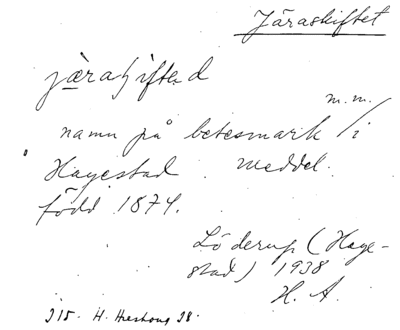 Järaskiftet
jæraʃifted
m.m.
namn på betesmark / i
Hagestad. Meddel.
född 1874.
Löderup (Hage-
stad) 1938
H. A.
H. 38.